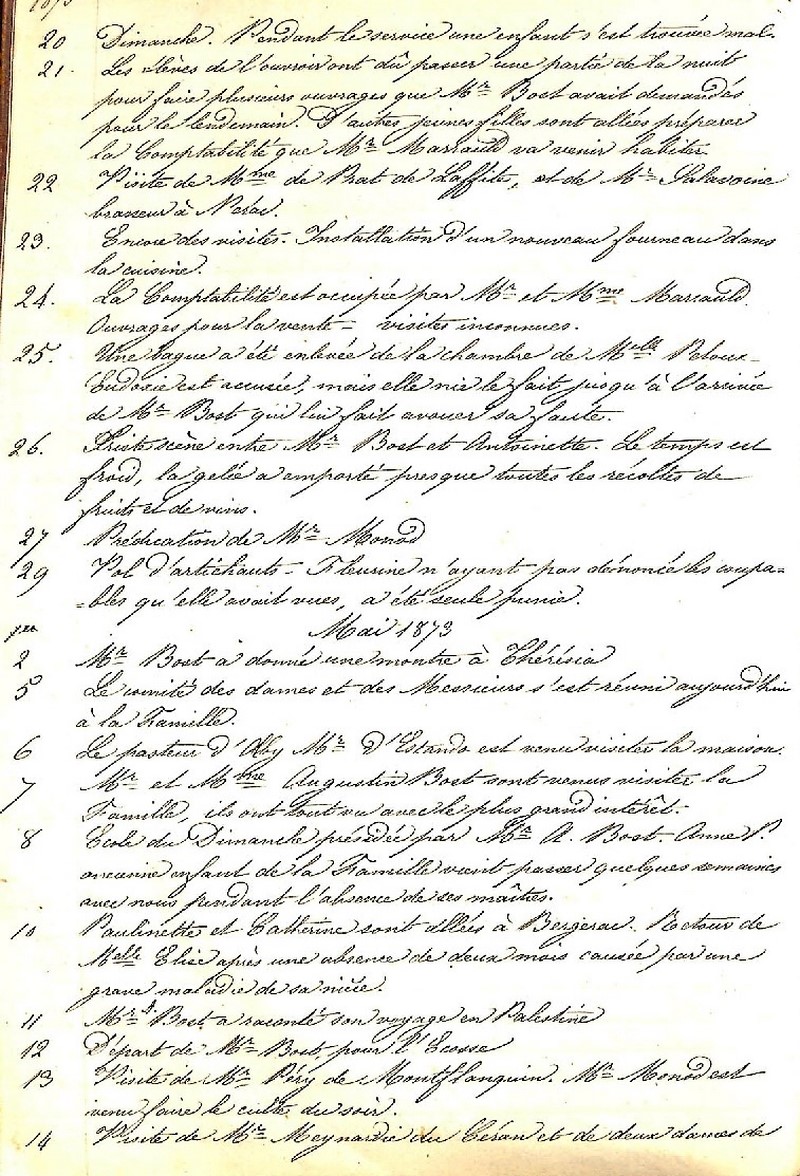 1873
20 Dimanche. Pendant le service une enfant s'est trouvée mal.
21. Les élèves de l'ouvroir ont dû passer une partie de la nuit
pour faire plusieurs ouvrages que Mr Bost avait demandés
pour le lendemain. D'autres jeunes filles sont allées préparer
la Comptabilité que Mr Marsauld va venir habiter
22 Visite de Mme de Bat de Laffite, et de Mr Salavoine
brasseur à Nérac.
23. Encore des visites. Installation d'un nouveau fourneau dans
la cuisine.
24. La Comptabilité est occupée par Mr et Mme Marsauld.
Ouvrages pour la vente – visites inconnues.
25. Une bague a été enlevée de la chambre de Melle Peloux –
Eudoxie est accusée, mais elle nie le fait jusqu'à l'arrivée
de Mr Bost qui lui fait avouer sa faute.
26. Triste scène entre Mr Bost et Antoinette. Le temps est
froid, la gelée a emporté presque toutes les récoltes de
fruits et de vins.
27 Prédication de Mr Monod
29 Vol d'artichauts – Fleurine n'ayant pas dénoncé les coupa=
=bles qu'elle avait vues, a été seule punie.
Mai 1873
2 Mr Bost a donné une montre à Thérésia
5 Le comité des dames et des Messieurs s'est réuni aujourd'hui
à la Famille.
6 Le pasteur d'Oby Mr d'Estando est venu visiter la maison.
7 Mr et Mme Augustin Bost sont venus visiter la
Famille, ils ont tout vu avec le plus grand intérêt.
8 Ecole du Dimanche présidée par Mr A. Bost. Anne P.
ancienne enfant de la Famille vient passer quelques semaines
avec nous pendant l'absence de ses maîtres.
10 Paulinette et Catherine sont allées à Bergerac. Retour de
Melle Elise après une absence de deux mois causée par une
grave maladie de sa nièce.
11 Mr A Bost a raconté son voyage en Palestine
12 Départ de Mr Bost, pour l'Ecosse
13 Visite de Mr Péry de Montflanquin. Mr Monod est
venu faire le culte du soir.
14 Visite de Mr Meynardie du Céran et de deux dames de